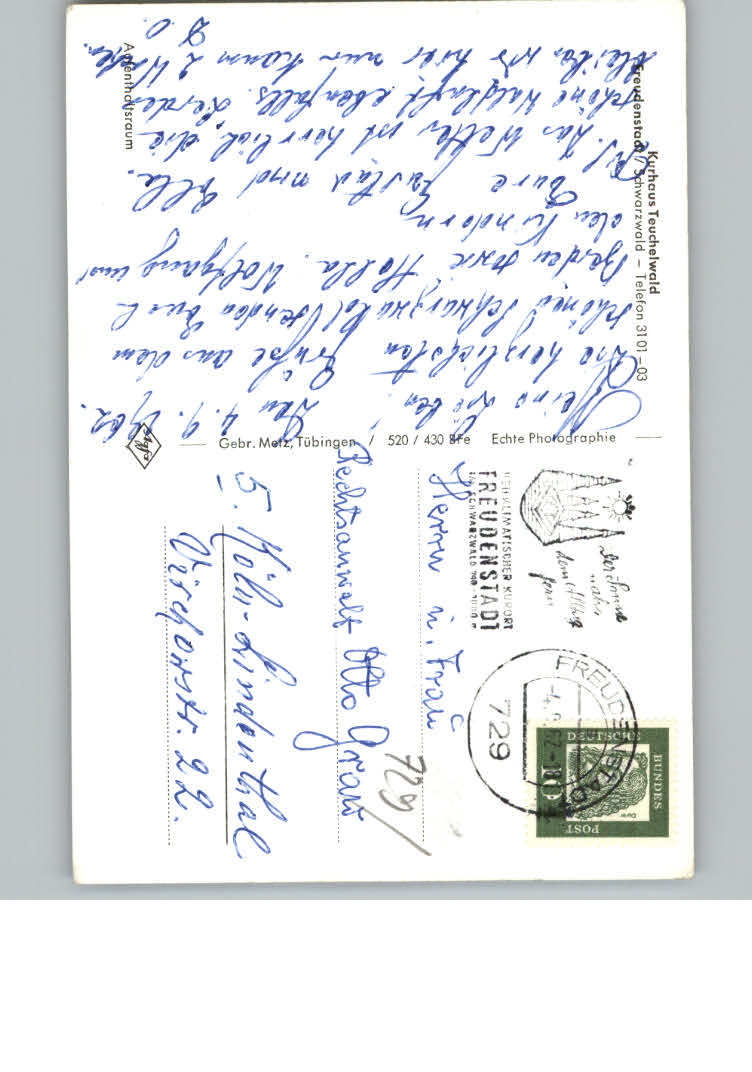 Kurhaus Teuchelwald
Freudenstadt / Schwarzwald – Telefon 3101–03
Aufenthaltsraum
Gebr. Metz, Tübingen / 520 / 430 BFe Echte Photographie
Agfa
Den 4. 9. 1962.
Meine Lieben!
Die herzlichsten Grüße aus dem
schönen Schwarzwald senden Euch
beiden sowie Holla. Wolfgang und
den Kindern
Eure Gustav und Ella.
P.S. Das Wetter ist herrlich, die
schöne Waldluft ebenfalls. Leider
bleiben wir hier nur kaum 2 Wochen.
D. O.
HEILKLIMATISCHER KURORT
FREUDENSTADT
IM SCHWARZWALD 740-1000 m
Der Sonne
nah
dem Alltag
fern
FREUDENSTADT
-4.9.62-10
729
DEUTSCHE
BUNDES
POST
10
Dürer
Herrn u. Frau
Rechtsanwalt Otto Graw
5. Köln-Lindenthal
Virchowstr. 22.
729/